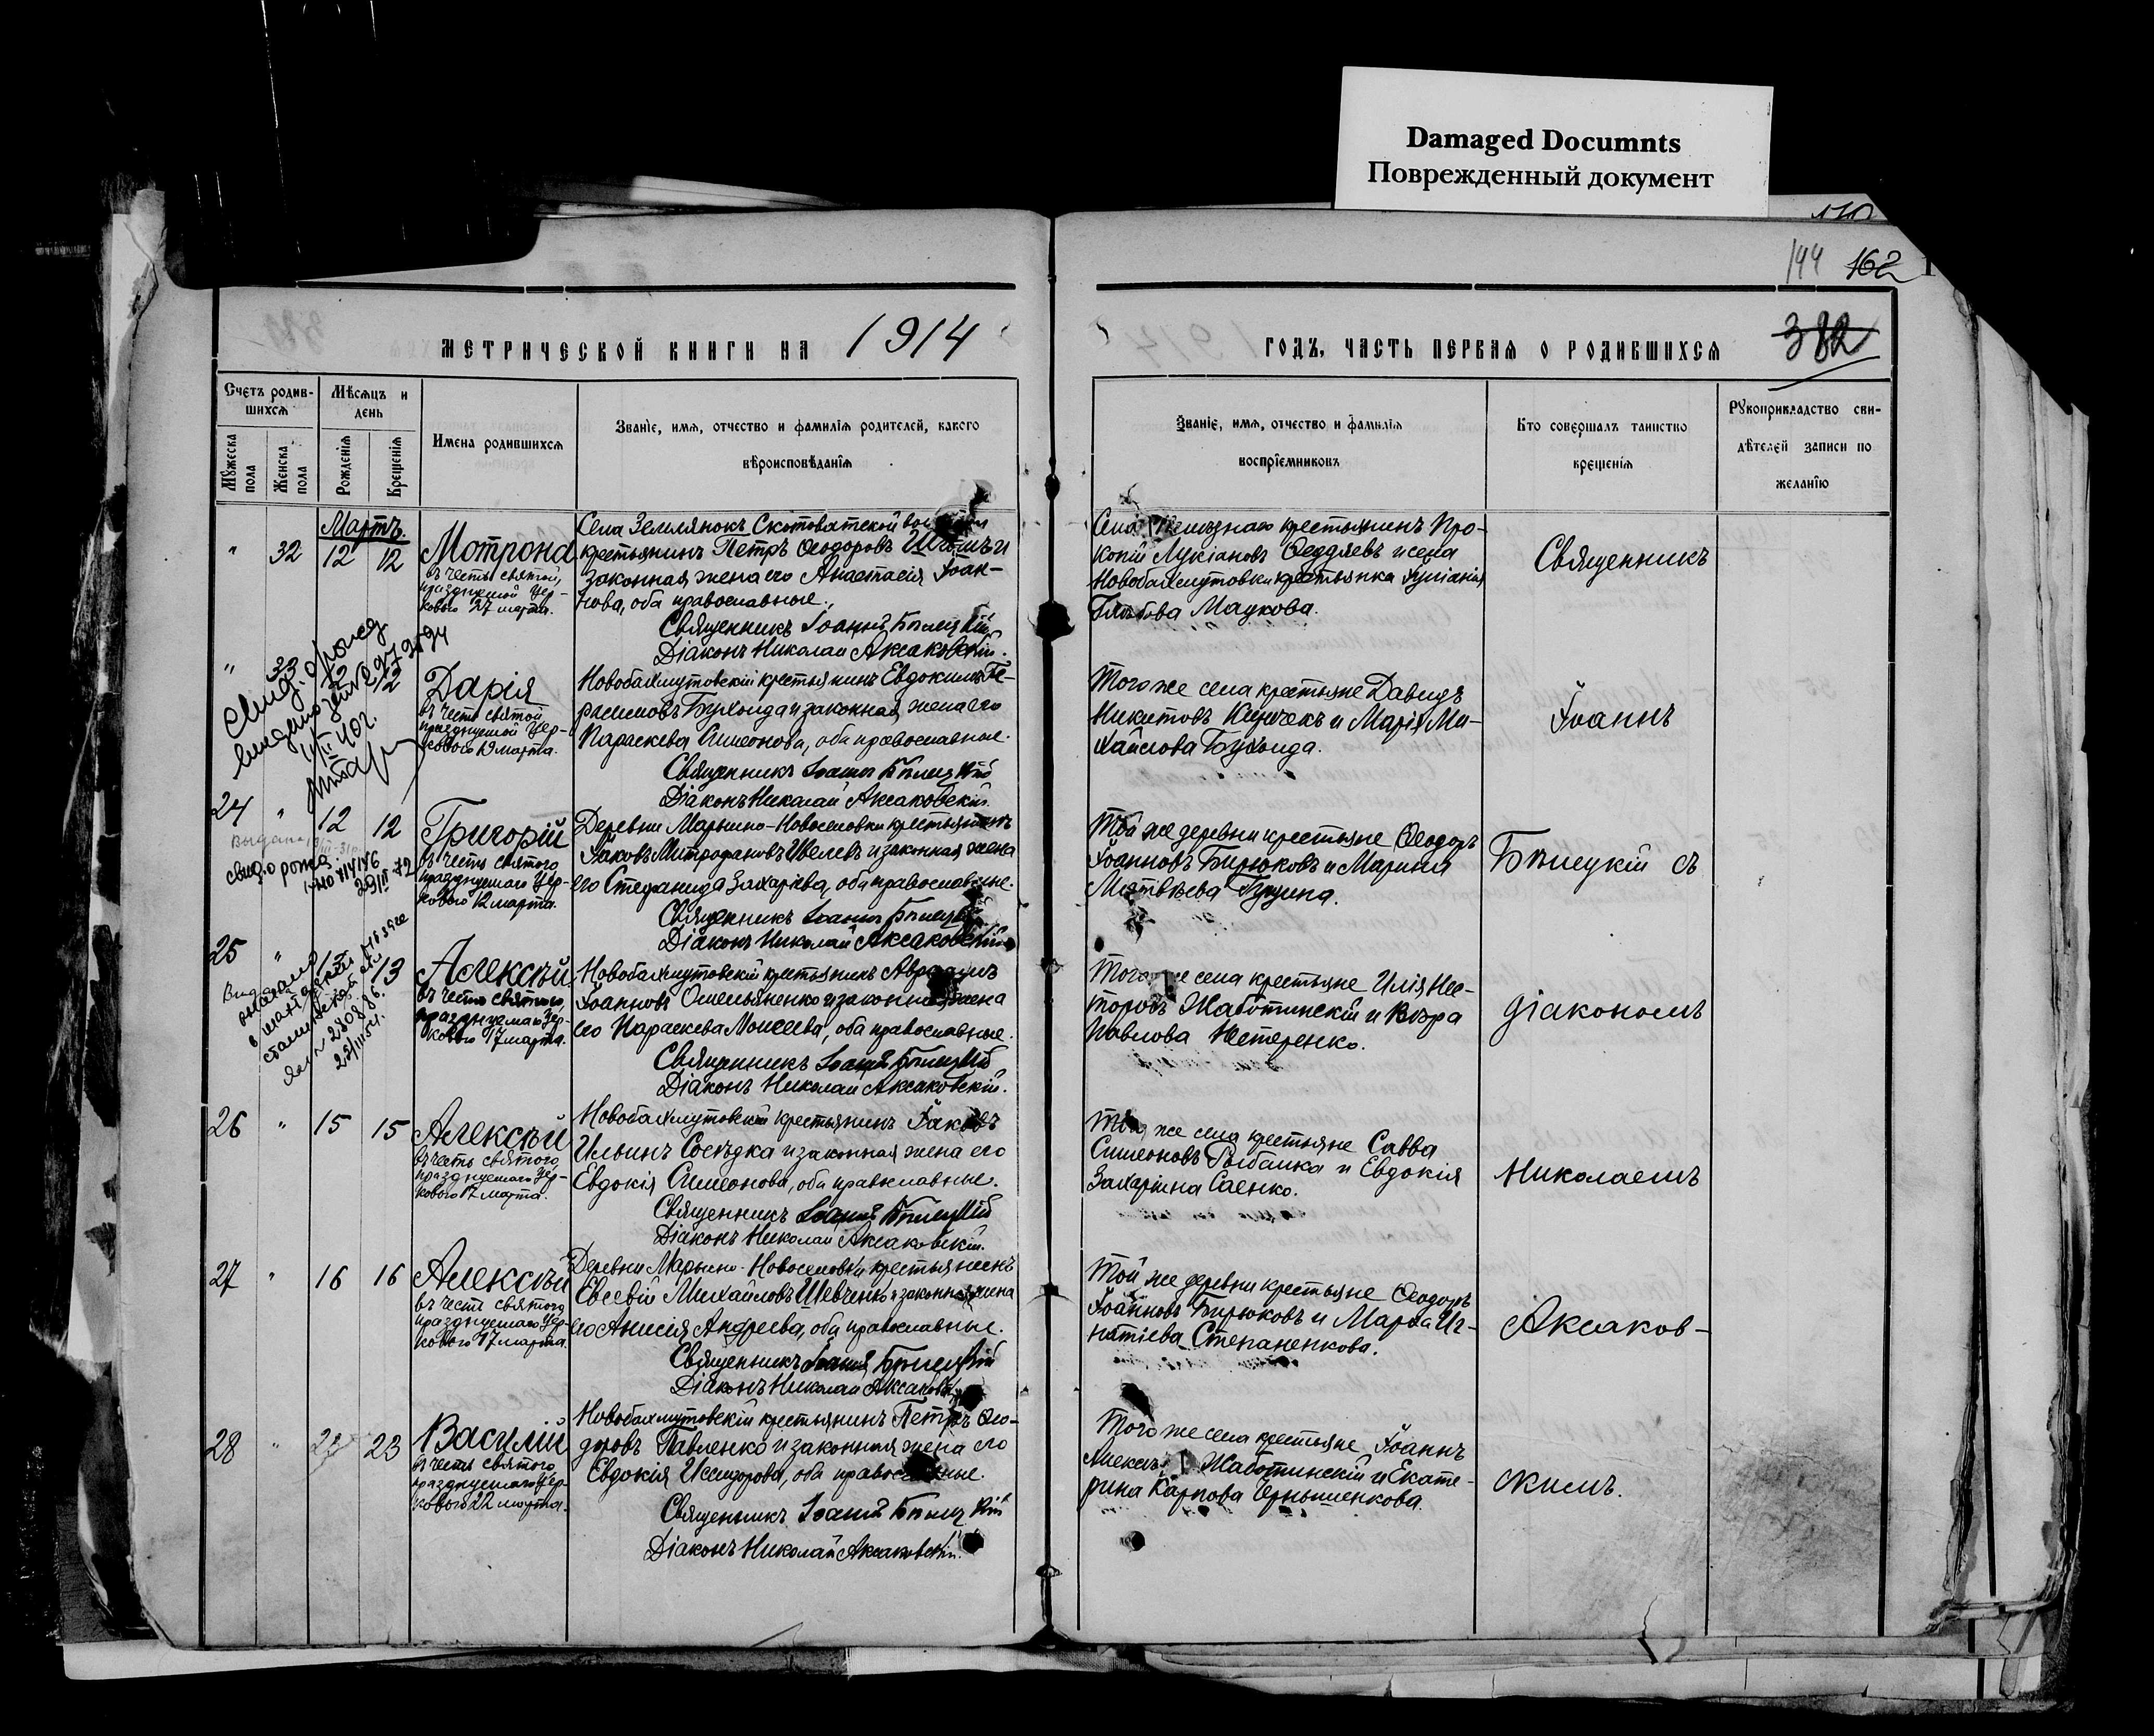 Damaged Documnts
Поврежденный документ
144 162
МЕТРИЧЕСКОЙ КНИГИ НА 1914
ГОДЪ, ЧАСТЬ ПЕРВАЯ О РОДИВШИХСЯ
382
Счетъ родив-
шихся
Мѣсяцъ и
день
Мужеска
пола
Женска
пола
Рожденія
Крещенія
Имена родившихся
Званіе, имя, отчество и фамилія родителей, какого
вѣроисповѣданія
Званіе, имя, отчество и фамилія
воспріемниковъ
Кто совершалъ таинство
крещенія
Рукоприкладство сви-
дѣтелей записи по
желанію
Мартъ.
" 32 12 12
Мотрона
въ честь святой,
празднуемой Цер-
ковью 27 марта.
Села Землянокъ Скотоватской
крестьянинъ Петръ Ѳеодоровъ
законная жена его Анастасія Іоан-
нова, оба православные.
Священникъ Іоаннъ Бѣлецкій
Діаконъ Николай Аксаковскій.
Села крестьянинъ Про-
копій Лукіановъ и села
Новобахмутовки крестьянка Іуліанія
Глѣбова Маукова.
Священникъ
" 33 12 12
Дарія
въ честь святой,
празднуемой Цер-
ковью 19 марта.
Новобахмутовскій крестьянинъ Евдокимъ Ге-
расимовъ Бухонда и законная жена его
Параскева Симеонова, оба православные.
Священникъ Іоаннъ Бѣлецкій
Діаконъ Николай Аксаковскій.
Того же села крестьяне Давидъ
Никитовъ и Марія Ми-
хайлова Бухонда.
Іоаннъ
24 " 12 12
Григорій
въ честь святого,
празднуемаго Цер-
ковью 12 марта.
Деревни Марьино-Новоселовки крестьянинъ
Іаковъ Митрофановъ Шелевъ и законная жена
его Стефанида Захаріева, оба православные.
Священникъ Іоаннъ Бѣлецкій
Діаконъ Николай Аксаковскій
Той же деревни крестьяне Ѳеодоръ
Іоанновъ Бирюковъ и Марина
Матвѣева
Бѣлецкій съ
25 " 13 13
Алексѣй
въ честь святого,
празднуемаго Цер-
ковью 17 марта.
Новобахмутовскій крестьянинъ Авраамъ
Іоанновъ Омельяненко и законная жена
его Параскева Моисеева, оба православные.
Священникъ Іоаннъ Бѣлецкій
Діаконъ Николай Аксаковскій.
Того же села крестьяне Илія Нес-
торовъ Жаботинскій и Вѣра
Павлова Нестеренко.
діакономъ
26 " 15 15
Алексѣй
въ честь святого,
празднуемаго Цер-
ковью 17 марта.
Новобахмутовскій крестьянинъ Іаковъ
Ильинъ Сосѣдка и законная жена его
Евдокія Симеонова, оба православные.
Священникъ Іоаннъ Бѣлецкій
Діаконъ Николай Аксаковскій.
Того же села крестьяне Савва
Симеоновъ Рыбалка и Евдокія
Захаріина Саенко.
Николаемъ
27 " 16 16
Алексѣй
въ честь святого
празднуемаго Цер-
ковью 17 марта.
Деревни Марьино-Новоселовки крестьянинъ
Евсевій Михайловъ Шевченко и законная жена
его Анисія Андреева, оба православные.
Священникъ Іоаннъ Бѣлецкій
Діаконъ Николай Аксаковскій
Той же деревни крестьяне Ѳеодоръ
Іоанновъ Бирюковъ и Марѳа Иг-
натіева Степаненкова.
Аксаков-
28 " 23
Василій
въ честь святого
празднуемаго Цер-
ковью 22 марта.
Новобахмутовскій крестьянинъ Петръ Ѳео-
доровъ Павленко и законная жена его
Евдокія Исидорова, оба православные.
Священникъ Іоаннъ Бѣлецкій
Діаконъ Николай Аксаковскій.
Того же села крестьяне Іоаннъ
Жаботинскій и Екате-
рина Карпова
скимъ.